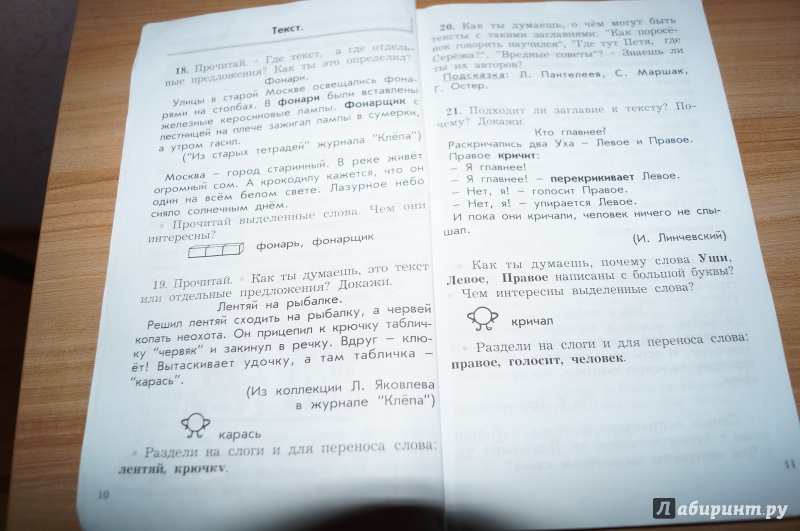 Текст.
18. Прочитай. • Где текст, а где отдель-
ные предложения? Как ты это определил?
Фонари.
Улицы в старой Москве освещались фона-
рями на столбах. В фонари были вставлены
железные керосиновые лампы. Фонарщик с
лестницей на плече зажигал лампы в сумерки,
а утром гасил.
("Из старых тетрадей" журнала "Клёпа")
Москва – город старинный. В реке живёт
огромный сом. А крокодилу кажется, что он
один на всём белом свете. Лазурное небо
сияло солнечным днём.
• Прочитай выделенные слова. Чем они
интересны?
фонарь, фонарщик
19. Прочитай. • Как ты думаешь, это текст
или отдельные предложения? Докажи.
Лентяй на рыбалке.
Решил лентяй сходить на рыбалку, а червей
копать неохота. Он прицепил к крючку таблич-
ку "червяк" и закинул в речку. Вдруг – клю-
ёт! Вытаскивает удочку, а там табличка –
"карась".
(Из коллекции Л. Яковлева
в журнале "Клёпа")
карась
• Раздели на слоги и для переноса слова:
лентяй, крючку.
10
20. Как ты думаешь, о чём могут быть
тексты с такими заглавиями: "Как поросё-
нок говорить научился", "Где тут Петя, где
Серёжа?", "Вредные советы"? • Знаешь ли
ты их авторов?
Подсказка: Л. Пантелеев, С. Маршак,
Г. Остер.
21. Подходит ли заглавие к тексту? По-
чему? Докажи.
Кто главнее?
Раскричались два Уха – Левое и Правое.
Правое кричит:
– Я главнее!
– Я главнее! – перекрикивает Левое.
– Нет, я! – голосит Правое.
– Нет, я! – упирается Левое.
И пока они кричали, человек ничего не слы-
шал.
(И. Линчевский)
• Как ты думаешь, почему слова Уши,
Левое, Правое написаны с большой буквы?
• Чем интересны выделенные слова?
кричал
• Раздели на слоги и для переноса слова:
правое, голосит, человек.
11
Лабиринт.ру